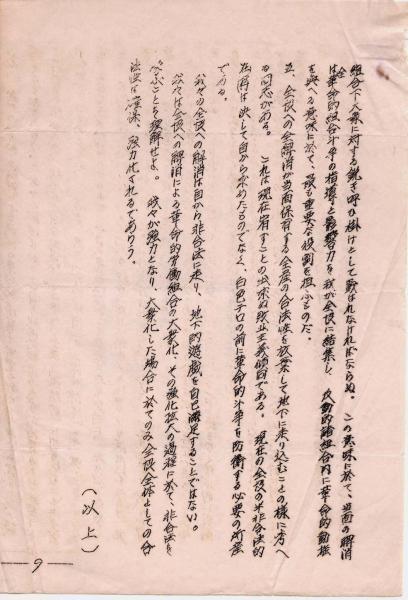 組合下大衆に対する鋭き呼び掛けとして戰はれなければならぬ。この意味に於て、当面の解消
は革命的組合斗爭の指導と影響力を我が全協に結集し、反動的諸組合内に革命的動揺
を與へる意味に於て、最も重要な役割を担ふものだ。
五、全協への全解消が当面保有する全産の合法性を放棄して地下に乗り込むことの様に考へ
る同志がある。これは現在宥すことの出来ぬ敗北主義的傾向である。現在の全協の半非合法的
在存は決して自から求めたものでなく、白色テロの前に革命的斗爭を防衛する必要の所産
である。
我々の全協への解消は自から非合法に走り、地下的遊戯を自己満足することではない。
我々は全協への解消による革命的労働組合の大衆化、その強化拡大の過程に於て、非合法を
べることを理解せよ。我々が強力となり、大衆化した場合に於てのみ全協全体としての合
法性は獲得、強力化されるであらう。
（以上）
9